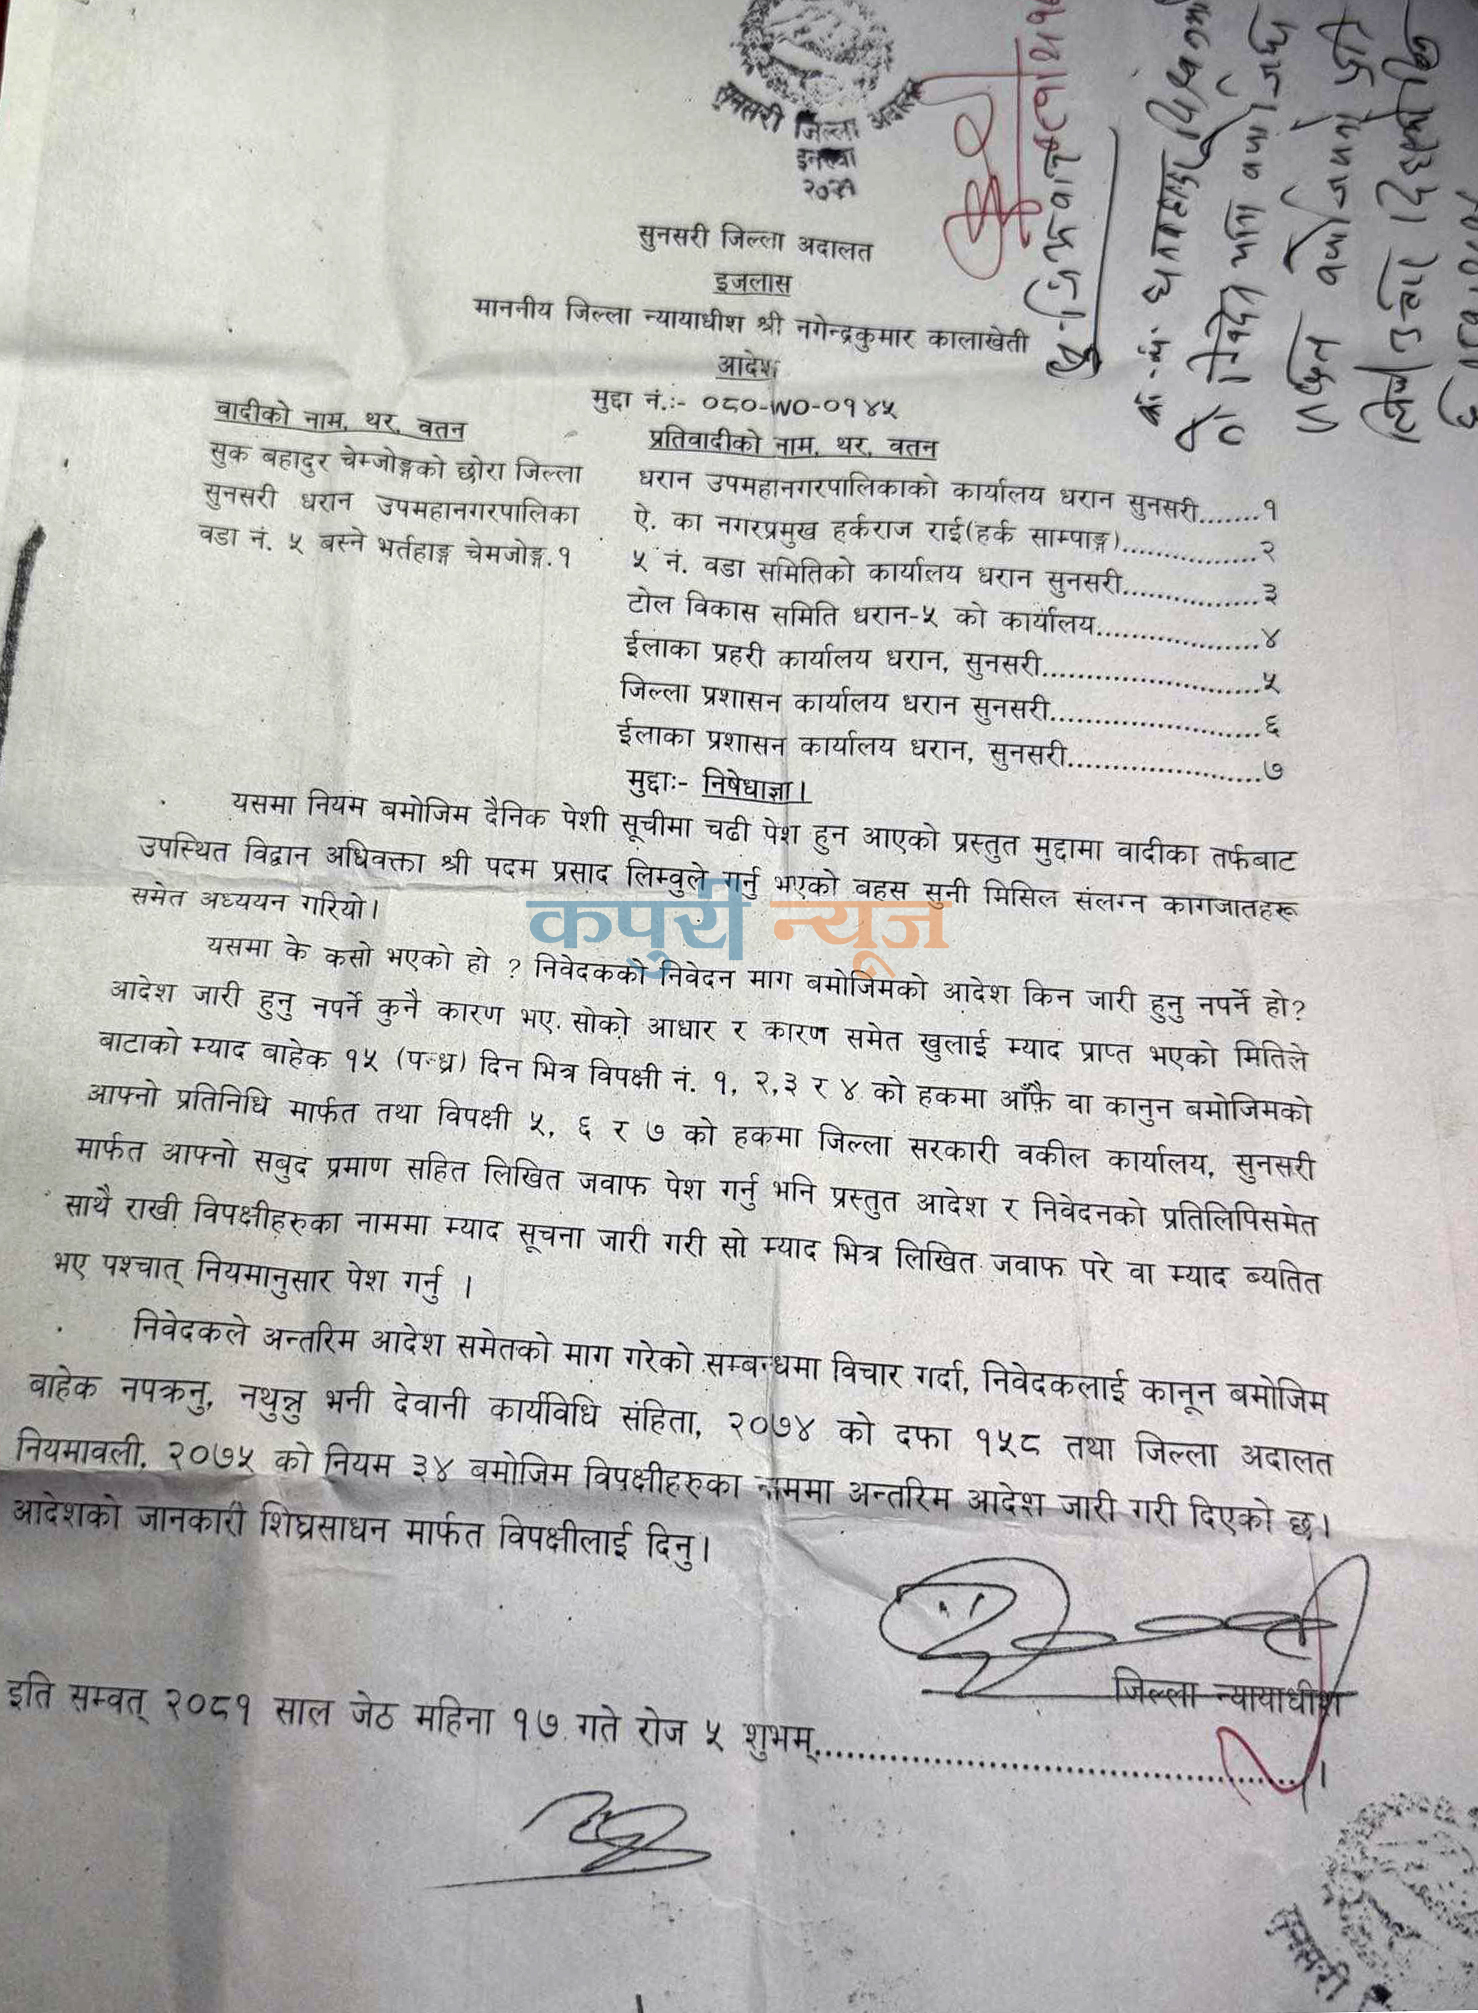 सुनसरी जिल्ला अदालत
सुनसरी जिल्ला अदालत
इजलास
माननीय जिल्ला न्यायाधीश श्री नगेन्द्रकुमार कालाखेती
आदेश
मुद्दा नं.:- ०८०-WO-०१४५
वादीको नाम, थर, वतन
सुक बहादुर चेम्जोङ्गको छोरा जिल्ला
सुनसरी धरान उपमहानगरपालिका
वडा नं. ५ बस्ने भर्तहाङ्ग चेमजोङ्ग.१
प्रतिवादीको नाम, थर, वतन
धरान उपमहानगरपालिकाको कार्यालय धरान सुनसरी........१
ऐ. का नगरप्रमुख हर्कराज राई(हर्क साम्पाङ्ग)................२
५ नं. वडा समितिको कार्यालय धरान सुनसरी................३
टोल विकास समिति धरान-५ को कार्यालय...................४
ईलाका प्रहरी कार्यालय धरान, सुनसरी.........................५
जिल्ला प्रशासन कार्यालय धरान सुनसरी........................६
ईलाका प्रशासन कार्यालय धरान, सुनसरी......................७
मुद्दाः- निषेधाज्ञा।
यसमा नियम बमोजिम दैनिक पेशी सूचीमा चढी पेश हुन आएको प्रस्तुत मुद्दामा वादीका तर्फबाट
उपस्थित विद्वान अधिवक्ता श्री पदम प्रसाद लिम्वुले गर्नु भएको वहस सुनी मिसिल संलग्न कागजातहरू
समेत अध्ययन गरियो।
कपुरी न्यूज
यसमा के कसो भएको हो ? निवेदकको निवेदन माग बमोजिमको आदेश किन जारी हुनु नपर्ने हो?
आदेश जारी हुनु नपर्ने कुनै कारण भए. सोको आधार र कारण समेत खुलाई म्याद प्राप्त भएको मितिले
बाटाको म्याद बाहेक १५ (पन्ध्र) दिन भित्र विपक्षी नं. १, २,३ र ४ को हकमा आँफै वा कानुन बमोजिमको
आफ्नो प्रतिनिधि मार्फत तथा विपक्षी ५, ६ र ७ को हकमा जिल्ला सरकारी वकील कार्यालय, सुनसरी
मार्फत आफ्नो सबुद प्रमाण सहित लिखित जवाफ पेश गर्नु भनि प्रस्तुत आदेश र निवेदनको प्रतिलिपिसमेत
साथै राखी विपक्षीहरुका नाममा म्याद सूचना जारी गरी सो म्याद भित्र लिखित जवाफ परे वा म्याद ब्यतित
भए पश्चात् नियमानुसार पेश गर्नु ।
निवेदकले अन्तरिम आदेश समेतको माग गरेको सम्बन्धमा विचार गर्दा, निवेदकलाई कानून बमोजिम
बाहेक नपक्रनु, नथुन्नु भनी देवानी कार्यविधि संहिता, २०७४ को दफा १५८ तथा जिल्ला अदालत
नियमावली, २०७५ को नियम ३४ बमोजिम विपक्षीहरुका नाममा अन्तरिम आदेश जारी गरी दिएको छ।
आदेशको जानकारी शिघ्रसाधन मार्फत विपक्षीलाई दिनु।
जिल्ला न्यायाधीश
इति सम्वत् २०८१ साल जेठ महिना १७ गते रोज ५ शुभम्...................................................।
सुनसरी